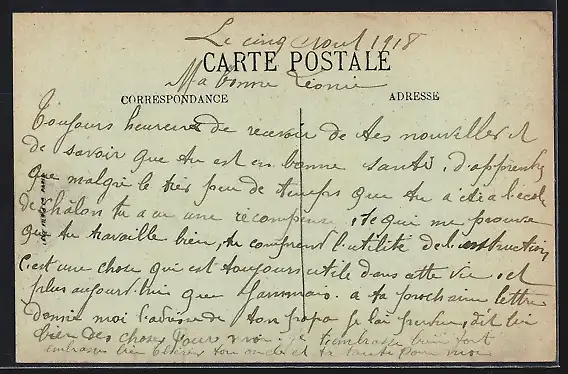 Le cinq aout 1918
CARTE POSTALE
Ma bonne Léonie
CORRESPONDANCE
ADRESSE
Toujours heureux de recevoir de tes nouvelles et
de savoir que tu est en bonne santé, d'apprendre
que malgré le très peu de temps que tu a été a l'école
de châlon tu a eu une récompense, ce qui me prouve
que tu travaille bien, tu comprend l'utilité de l'instruction
c'est une chose qui est toujours utile dans cette vie, et
plus aujourd'hui que jammais. a ta prochaine lettre
donne moi l'adresse de ton papa je l'ai perdue, dit lui
bien des choses pour moi. je t'embrasse bien fort
embrasse bien ton oncle et ta tante pour moi